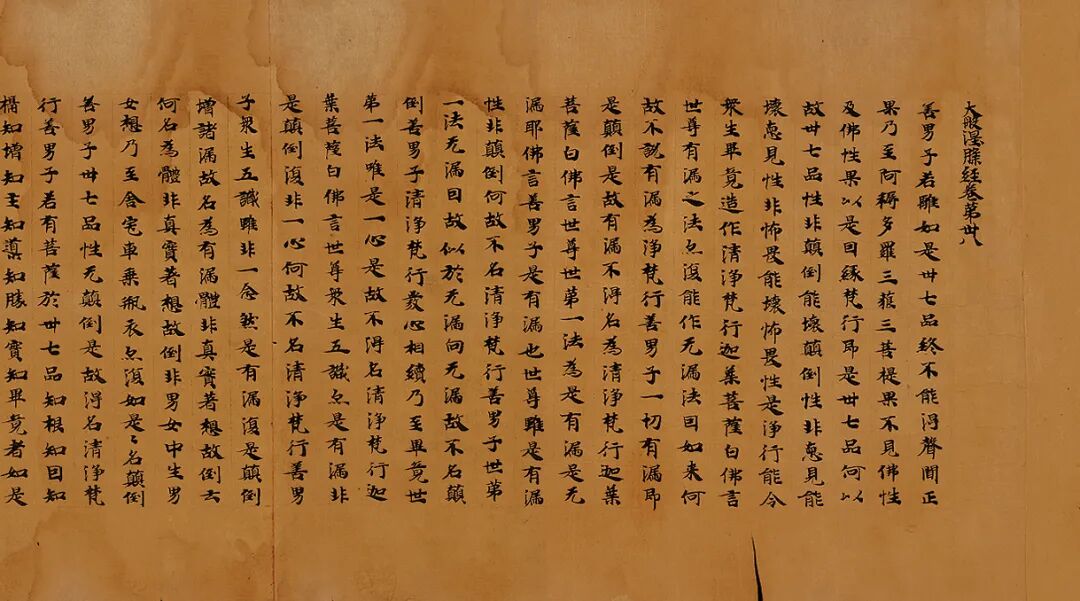 大般涅槃經卷第卅八
善男子若離如是卅七品終不能得聲聞正
果乃至阿耨多羅三藐三菩提果不見佛性
及佛性果以是因緣梵行即是卅七品何以
故卅七品性非顛倒能壞顛倒性非惡見能
壞惡見性非怖畏能壞怖畏性是淨行能令
衆生畢竟造作清淨梵行迦葉菩薩白佛言
世尊有漏之法亦復能作无漏法因如來何
故不說有漏為淨梵行善男子一切有漏即
是顛倒是故有漏不得名為清淨梵行迦葉
菩薩白佛言世尊世第一法為是有漏是无
漏耶佛言善男子是有漏也世尊雖是有漏
性非顛倒何故不名清淨梵行善男子世第
一法无漏因故似於无漏向无漏故不名顛
倒善男子清淨梵行發心相續乃至畢竟世
第一法唯是一心是故不得名清淨梵行迦
葉菩薩白佛言世尊衆生五識亦是有漏非
是顛倒復非一心何故不名清淨梵行善男
子衆生五識雖非一念然是有漏復是顛倒
增諸漏故名為有漏體非真實著想故倒云
何名為體非真實著想故倒非男女中生男
女想乃至舍宅車乘瓶衣亦復如是〻名顛倒
善男子卅七品性无顛倒是故得名清淨梵
行善男子若有菩薩於卅七品知根知因知
知增知主知導知勝知實知畢竟者如是